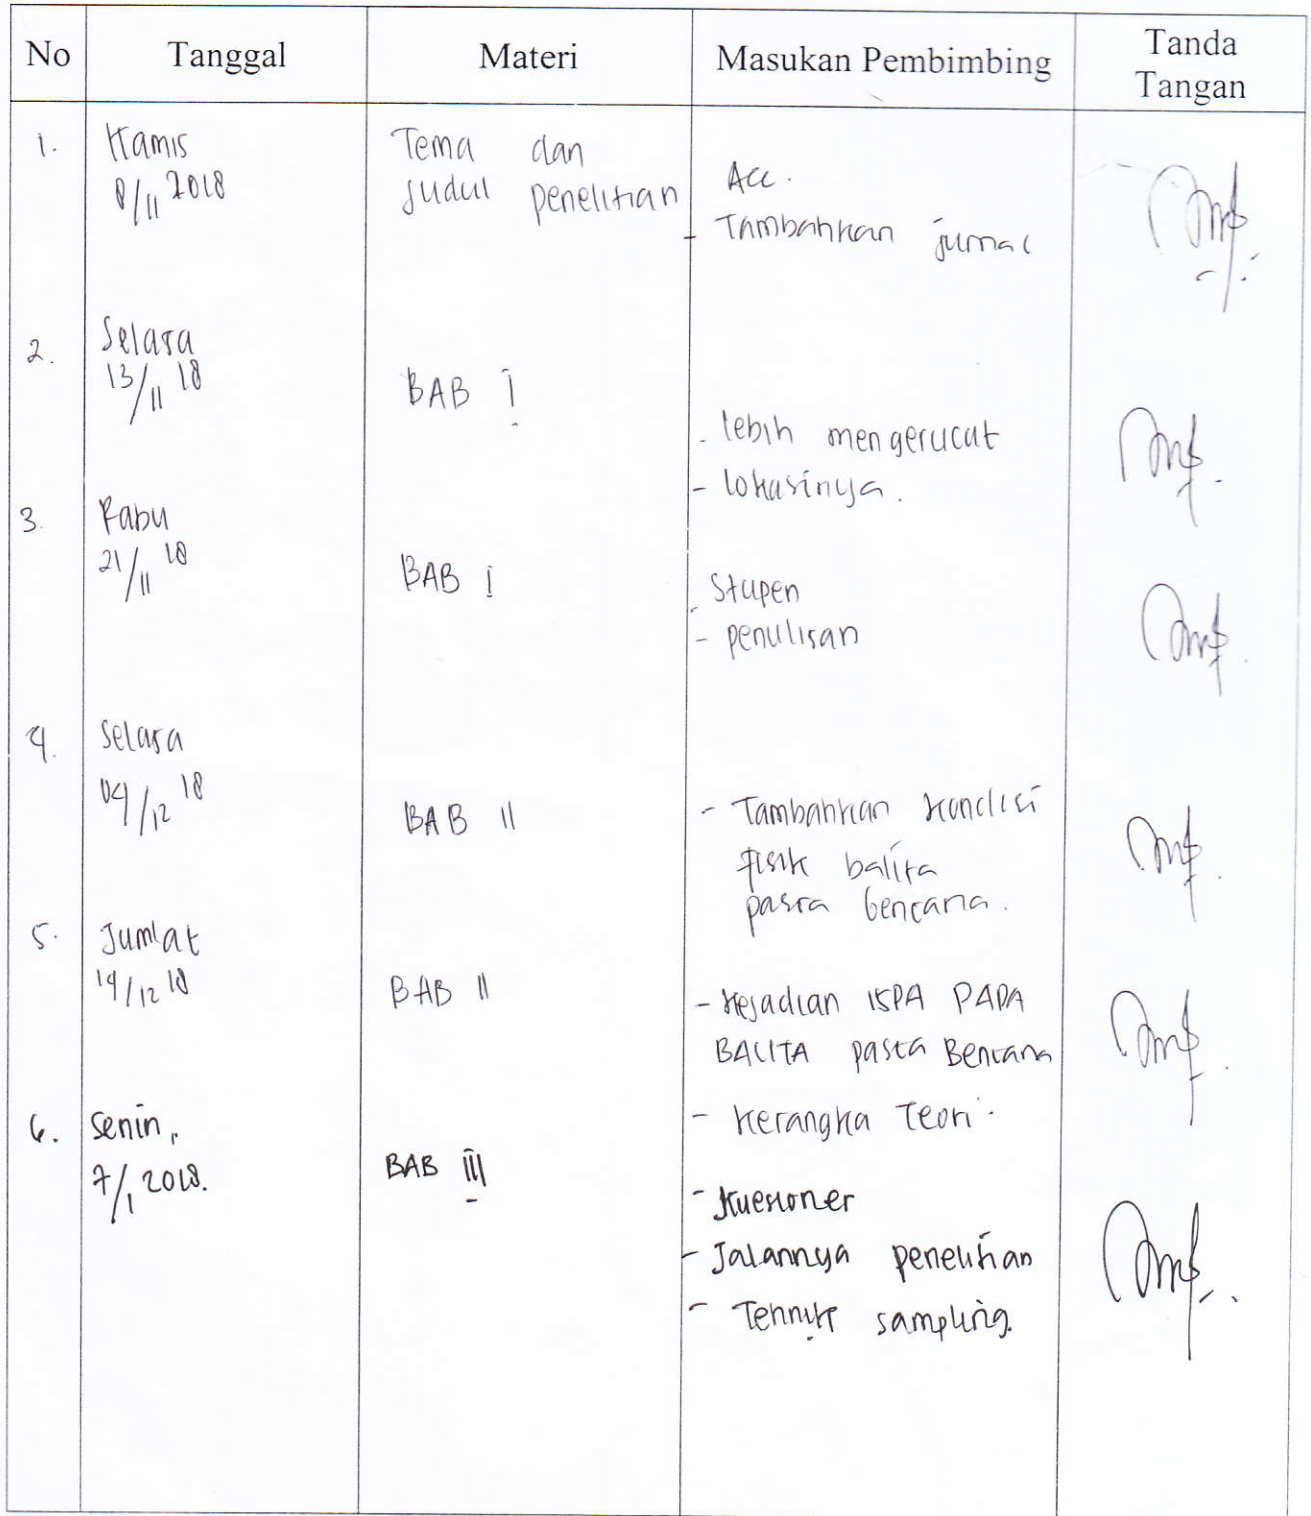 No Tanggal Materi Masukan Pembimbing Tanda Tangan
1. Kamis Tema dan
8/11 2018 judul penelitian Acc.
- Tambahkan jurnal
2. Selasa
13/11 18 BAB I
- lebih mengerucut
- lokasinya.
3. Rabu
21/11 18 BAB I - Stupen
- penulisan
4. Selasa
04/12 18 BAB II - Tambahkan kondisi
fisik balita
pasca bencana.
5. Jum'at
14/12 18 BAB II - Kejadian ISPA PADA
BALITA pasca Bencana
- Kerangka Teori.
6. Senin,
7/1 2018. BAB III
- Kuesioner
- Jalannya penelitian
- Tehnik sampling.